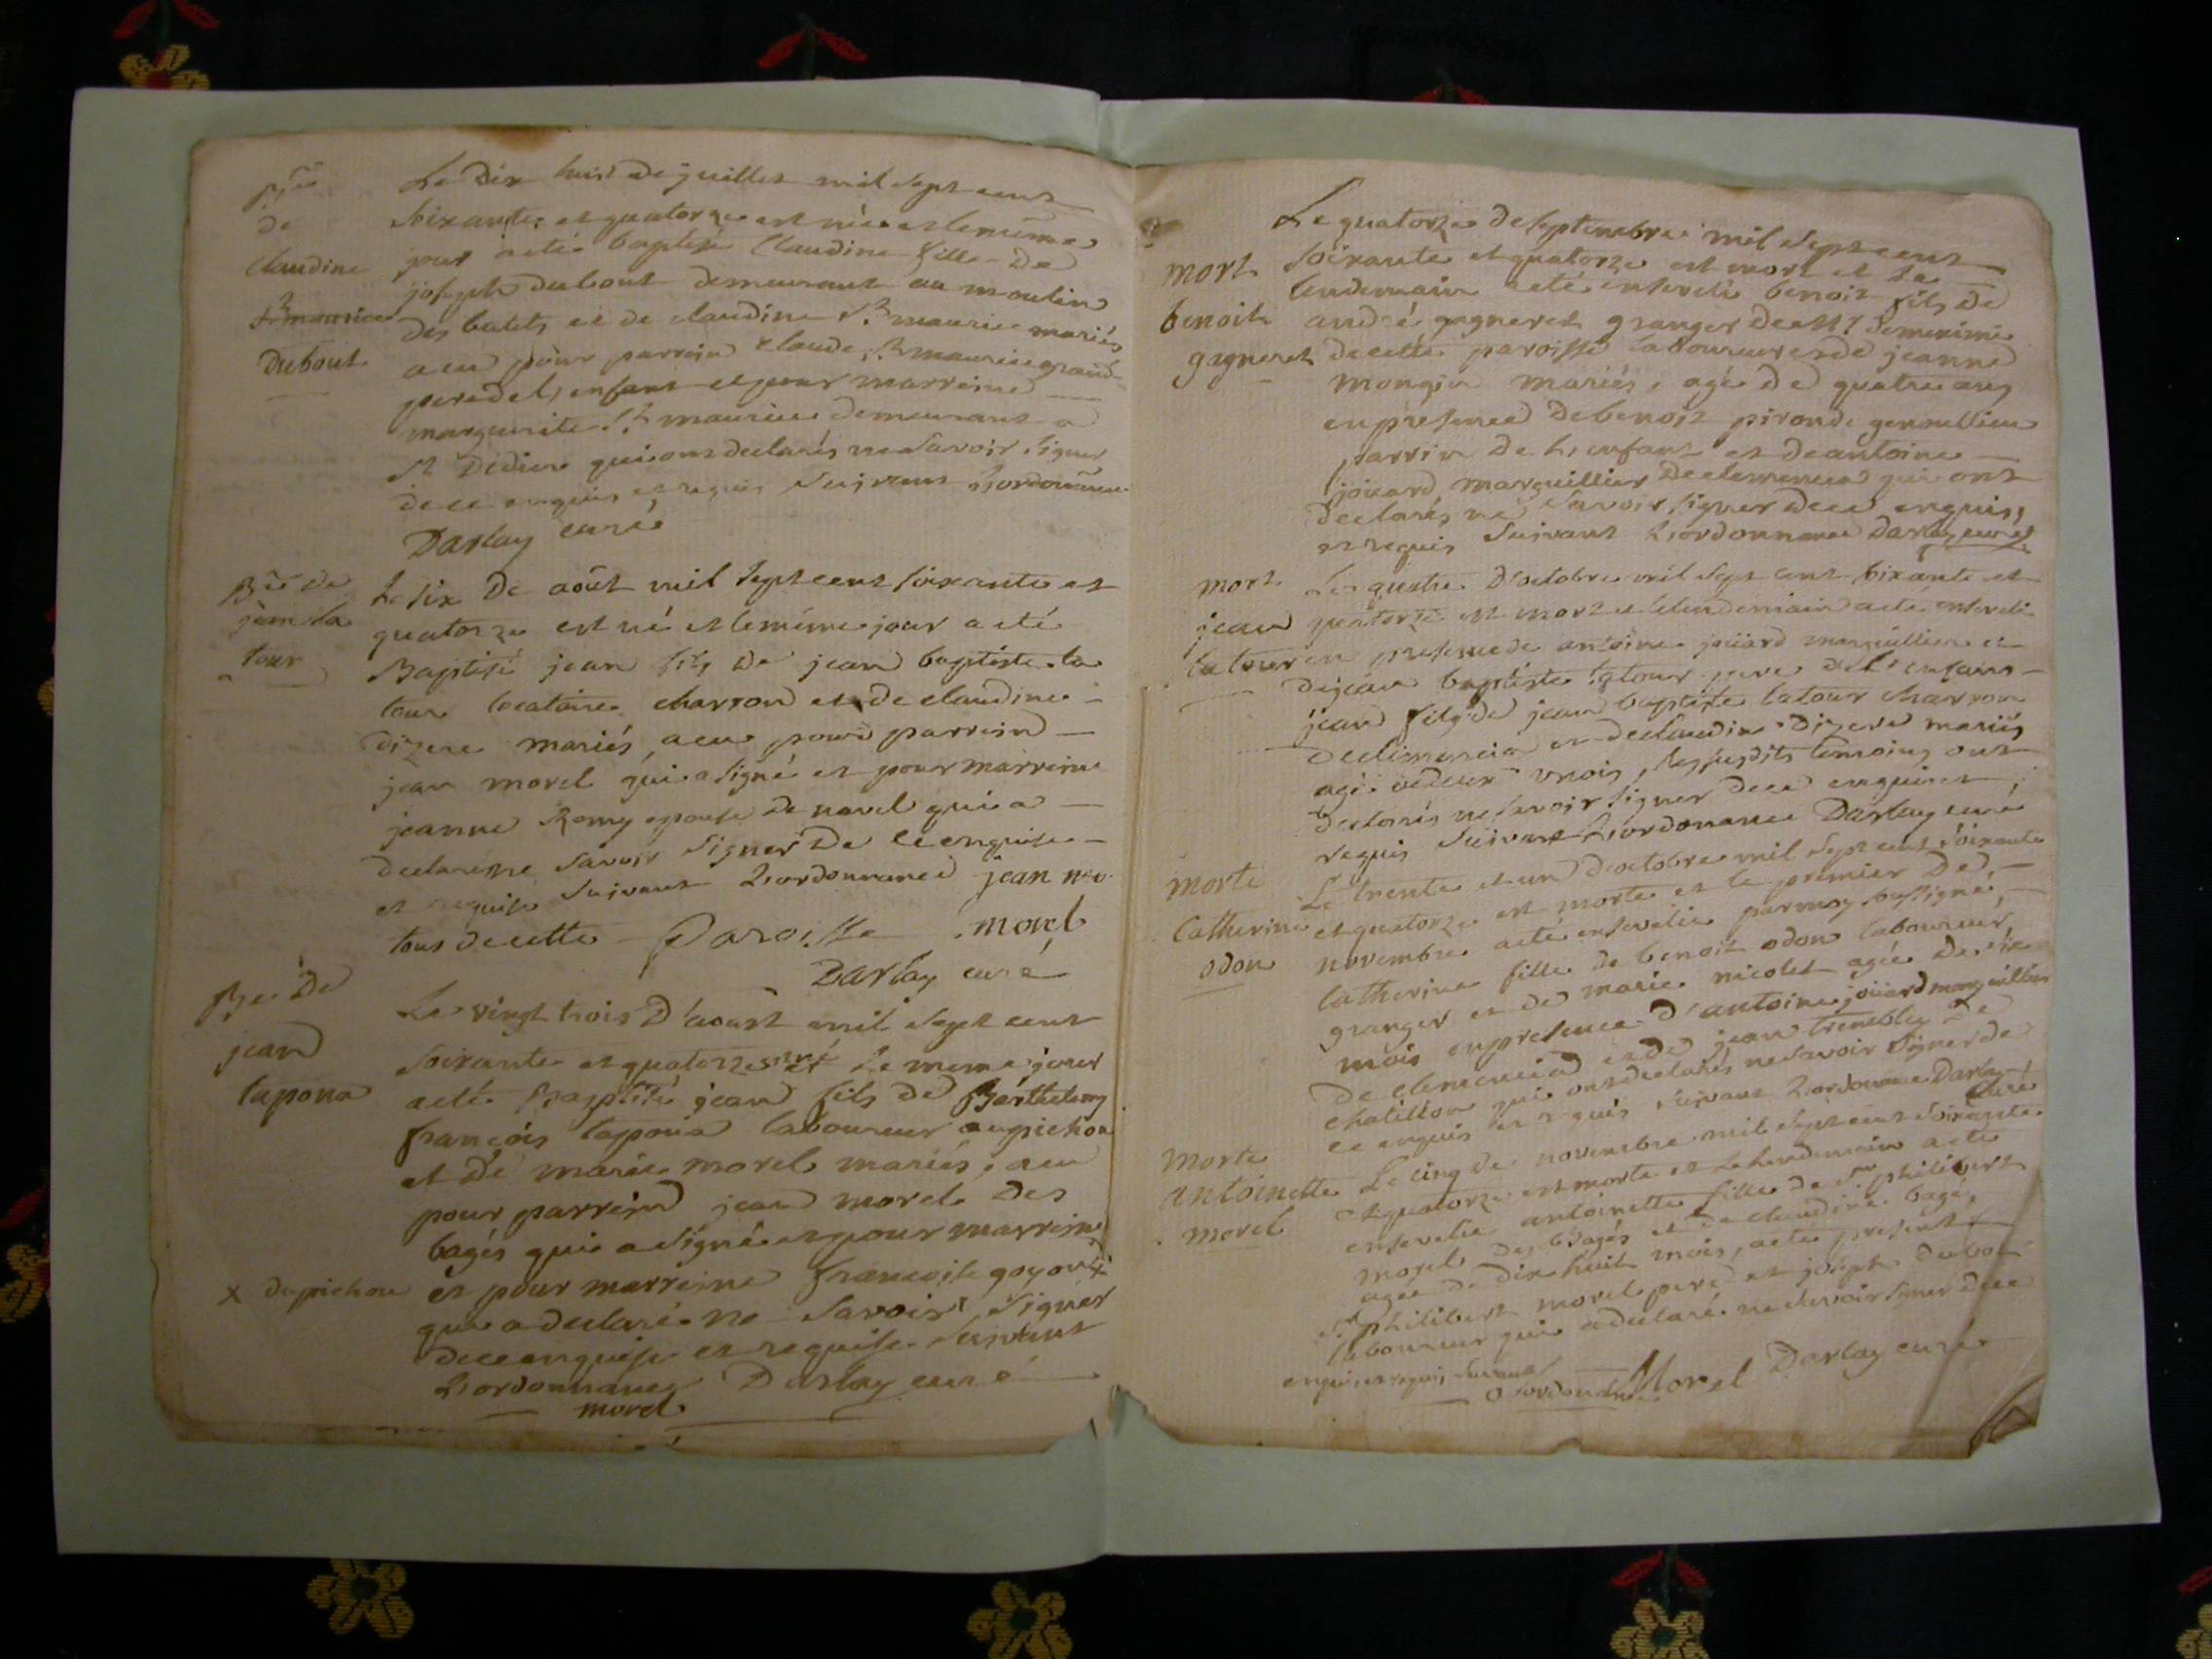 Bme
de
Claudine
St maurice
Dubout
Le Dix huit de juillet mil sept cent
soixante et quatorze est née et le même
jour a été baptisée Claudine fille De
joseph dubout demeurant au moulin
des et de claudine St maurice mariés
a eu pour parrein claude St maurice grand
pere de l'enfant et pour marreine
marguerite St maurice demeurant a
St Didier qui ont declarés ne savoir signer
de ce enquis et requis suivant l'ordonnance
Darlay curé
Bme de
jean la
tour
Le six De août mil sept cent soixante et
quatorze est né et le même jour a eté
Baptisé jean fils de jean baptiste la
tour locataire charron et de claudine
dizere mariés a eu pour parrein
jean morel qui a signé et pour marreine
jeanne Remy epouse de morel qui a
declaré ne savoir signer De ce enquise
et requise suivant l'ordonnance jean mo
tous de cette Paroisse morel
Darlay curé
Bme De
jean
tapona
Le vingt trois D'aoust mil sept cent
soixante et quatorze est né et le meme jour
a eté Baptisé jean fils de Barthelemy
françois tapona laboureur au pichon
et De marie morel mariés, a eu
pour parrein jean morel des
bagés qui a signé et pour marreine
x du pichon
et pour marreine francoise goyon x
qui a declaré ne savoir signer
de ce enquise et requise suivant
l'ordonnance Darlay curé
morel
Le quatorze de septembre mil sept cent
mort
benoit
gagneret
soixante et quatorze est mort et le
lendemain a eté enseveli benoit fils De
andré gagneret granger de
de cette paroisse laboureur et de jeanne
mongin mariés, agé de quatre ans
en presence De benoit piron de
parrin de l'enfant et de antoine
joüard marguillier de clemencia qui ont
declarés ne savoir signer de ce enquis
et requis suivant l'ordonnance Darlay curé
mort
jean
la tour
Le quatre D'octobre mil sept cent soixante et
quatorze est mort et le lendemain a eté enseveli
en presence de antoine joüard marguillier et
de jean baptiste latour pere de l'enfant
jean fils de jean baptiste latour charron
de clemencia et de claudine dizere mariés
agé de deux mois, les susdits temoins ont
declarés ne savoir signer de ce enquis et
requis suivant l'ordonnance Darlay curé
morte
Catherine
odon
Le trente et un D'octobre mil sept cent soixante
et quatorze est morte et le premier De
novembre a eté ensevelie par moy soussigné
Catherine fille de benoit odon laboureur
granger et de marie nicolet agée de six
mois en presence d'antoine joüard marguillier
De clemencia et de jean trembley De
chatillon qui ont declarés ne savoir signer de
ce enquis et requis suivant l'ordonnance Darlay
curé
morte
antoinette
morel
Le cinq de novembre mil sept cent soixante
et quatorze est morte et le lendemain a eté
ensevelie antoinette fille de Sr philibert
morel Des Bagés et de claudine bagé,
agée de dix huit mois, a eté present
Sr philibert morel pere et joseph dubout
laboureur qui a declaré ne savoir signer de ce
enquis et requis suivant
l'ordonnance Morel Darlay curé